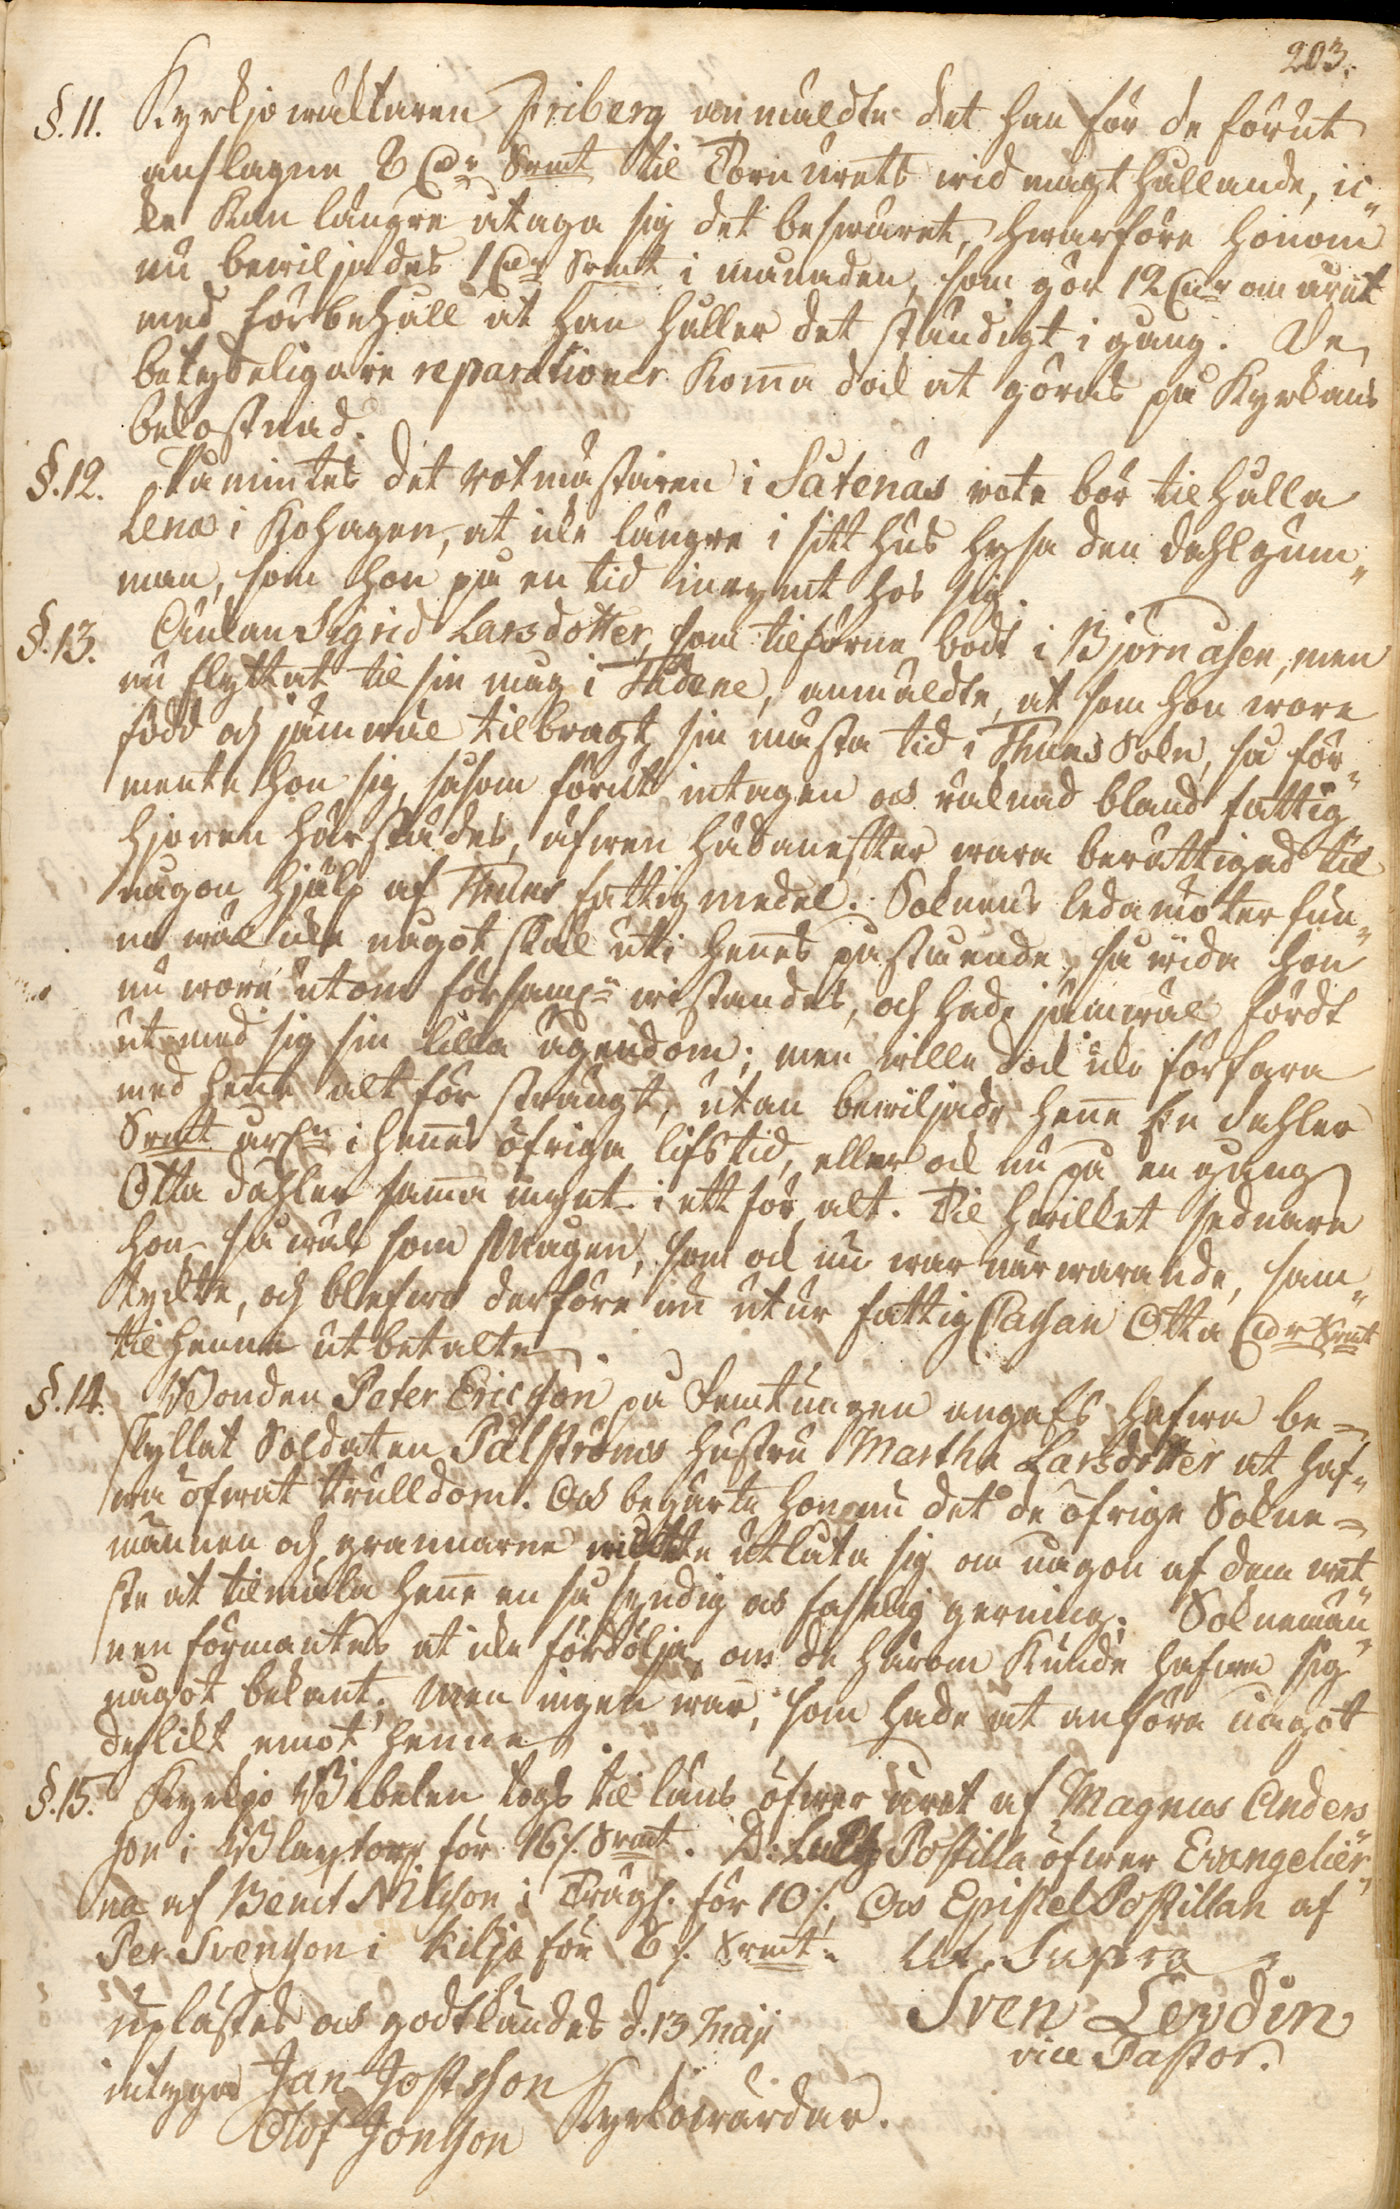 203.
§.11. Kyrkjowäktaren Friberg anmäldte det han för de förut
anslagne 8 Dr Srmt til Torn urets wid magt hållande, ic„
ke kan längre åtaga sig det beswäret, hwarföre honom
nu bewiljades 1 Dr Srmt i månaden, som gör 12 Dr om året
med förbehåll at han håller det ständigt i gång. De
betydeligare reparationer komma dock at göras på Kyrkans
bekostnad.
§.12. Påmintes det rotmästaren i Såtenäs rote bör tilhålla
Lena i Kohagen, at icke längre i sitt hus hysa den dahlgum„
man, som hon på en tid inrymt hos sig.
§.13. Änkan Sigrid Larsdotter, som tilförne bodt i Björnåsen, men
nu flyttat til sin måg i Tådene, anmäldte, at som hon wore
född och jämwäl tilbragt sin mästa tid i Thuns Sokn, så för„
mente hon sig, såsom förut intagen och räknad bland fattig„
hjonen härstädes, äfwen hädanefter wara berättigad til
någon hjälp af Thuns fattigmedel. Soknens ledamöter fun„
no wäl icke något skäl uti hennes påstående, så wida hon
nu wore utom församl:n wistandes, och hade jämwäl fördt
ut med sig sin lilla ägendom; men wille dock icke förfara
med henne alt för strängt, utan bewiljade henne En dahler
Srmt årl:n i hennes öfriga lifstid, eller ock nu på en gång
Otta dahler samma mynt i ett för alt. Til hwilket sednare
hon så wäl som Mågen, som ock nu war närwarande, sam„
tyckte, och blefwo derföre nu utur fattig Cassan Otta Dr Srmt
til henne utbetalte.
§.14. Bonden Peter Ericsson på Temtungen angafs hafwa be=
skyllat Soldaten Palströms hustru Martha Larsdotter at haf„
wa öfwat trulldom. Och begärte hon nu det de öfrige Sokne=
männen och grannarne wille utlåta sig om någon af dem wet„
ste at tilmäla henne en så syndig och faselig gerning. Soknemän„
nen förmantes at icke fördölja, om de härom kunde hafwa sig
något bekant. Men ingen war, som hade at anföra något
deslikt emot henne.
§.15. Kyrkjo Bibelen togs til låns öfwer året af Magnus Anders
son i Blaxtorp för 16 s. Srmt. D: Lutß Postilla öfwer Evangelier„
na af Bengt Nilsson i Trägs. för 10 s. Och Epistel Postillan af
Per Svensson i Kilja för 8 s. Srmt. Ut Supra
Sven Leydin
vice Pastor.
upläst och godtkändes d. 13 Maji
intyga Jan Jostsson
Olof Jonsson Kyrkowärdar.